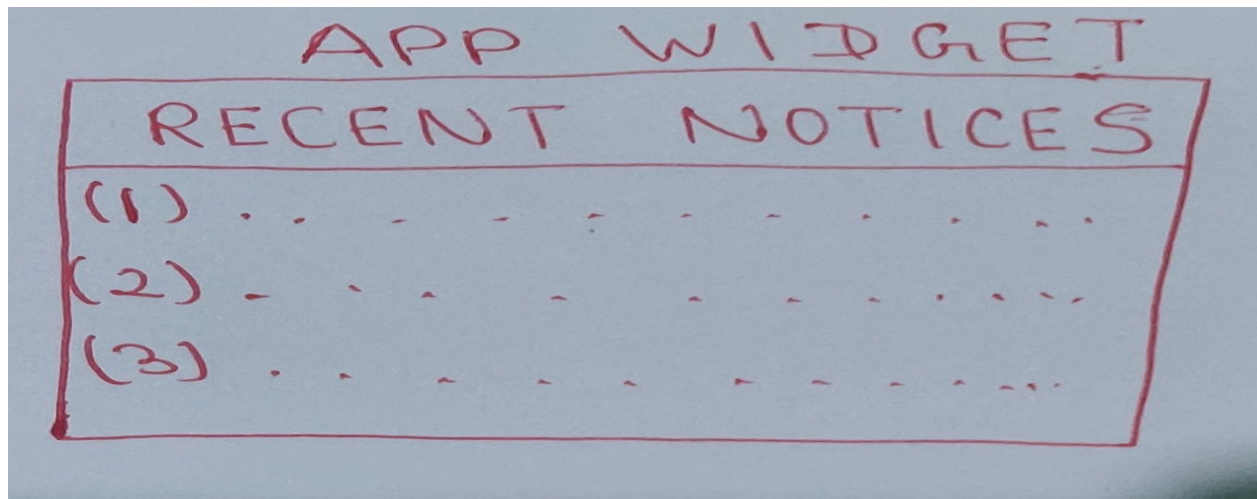 APP WIDGET
RECENT NOTICES
(1) . . . . . . . . . . .
(2) . . . . . . . . . . .
(3) . . . . . . . . . . . .